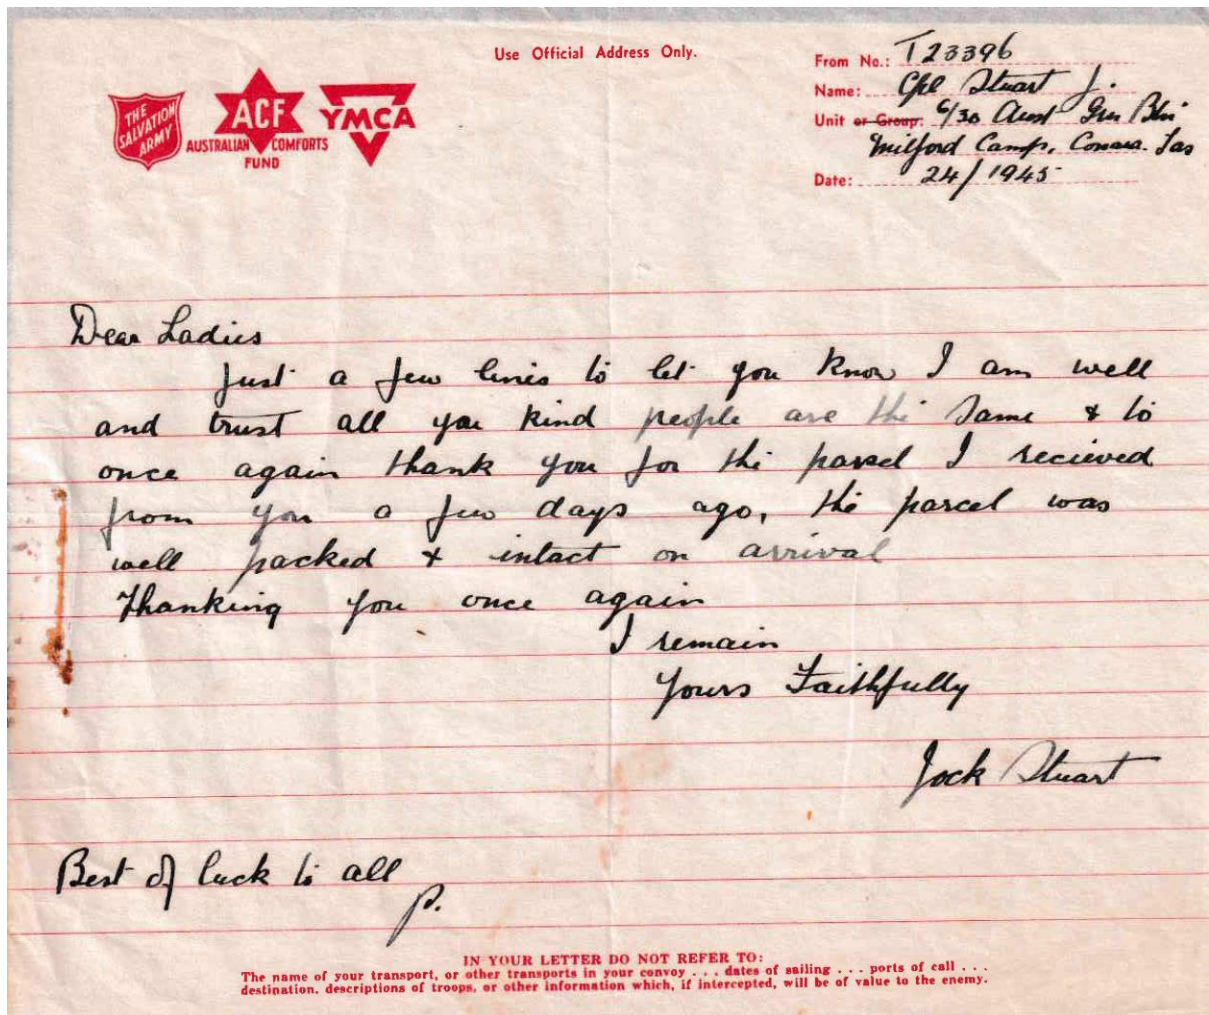 Use Official Address Only.
THE
SALVATION
ARMY
ACF
AUSTRALIAN COMFORTS
FUND
YMCA
From No.: T23396
Name: Cpl Stuart J.
Unit or Group: 6/30 Aust Gsn Btn
Milford Camp, Conara. Tas
Date: 24/1945
Dear Ladies
Just a few lines to let you know I am well
and trust all you kind people are the same & to
once again thank you for the parcel I recieved
from you a few days ago, the parcel was
well packed & intact on arrival
Thanking you once again
I remain
Yours Faithfully
Jock Stuart
Best of luck to all
IN YOUR LETTER DO NOT REFER TO:
The name of your transport, or other transports in your convoy . . . dates of sailing . . . ports of call . . .
destination, descriptions of troops, or other information which, if intercepted, will be of value to the enemy.